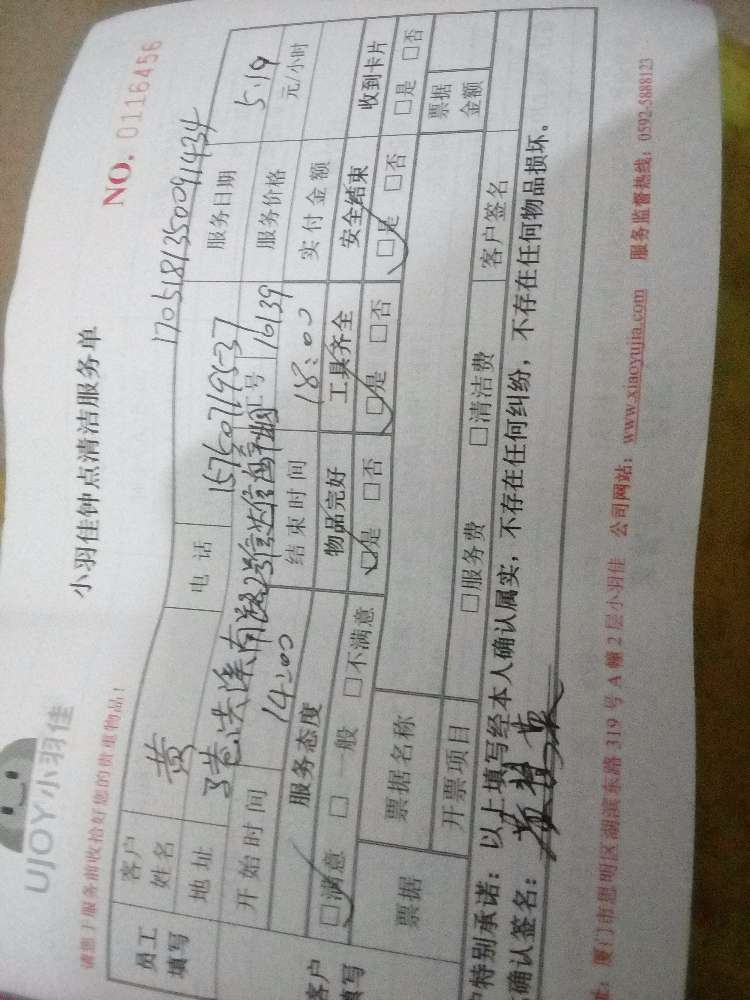 UJOY小羽佳
小羽佳钟点清洁服务单
NO. 0116456
请您于服务前收拾好您的贵重物品!
170518135009 1434
员工填写
客户姓名 黄 电话 15750719537 服务日期 5.19
地址 服务价格 元/小时
工号 16139
开始时间 14:00 结束时间 18:00 实付金额
服务态度 物品完好 工具齐全 安全结束 收到卡片
☑满意 □一般 □不满意 ☑是 □否 ☑是 □否 ☑是 □否 □是 □否
票据 票据名称 票据金额
开票项目 □服务费 □清洁费 客户签名
特别承诺:以上填写经本人确认属实,不存在任何纠纷,不存在任何物品损坏。
确认签名:
厦门市思明区湖滨东路319号A幢2层小羽佳 公司网站:www.xiaoyujia.com 服务监督热线:0592-5888123